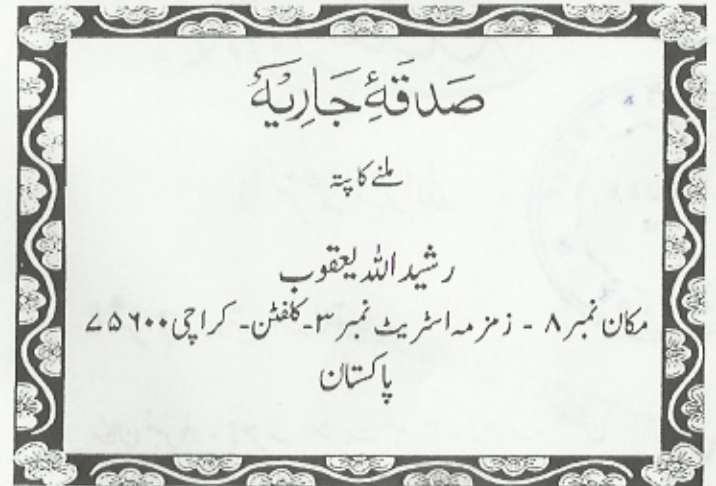 صَدقَۂِ جَارِیَہ
ملنے کا پتہ
رشید اللہ یعقوب
مکان نمبر ۸ - زمزمہ اسٹریٹ نمبر ۳ - کلفٹن - کراچی ۷۵۶۰۰
پاکستان